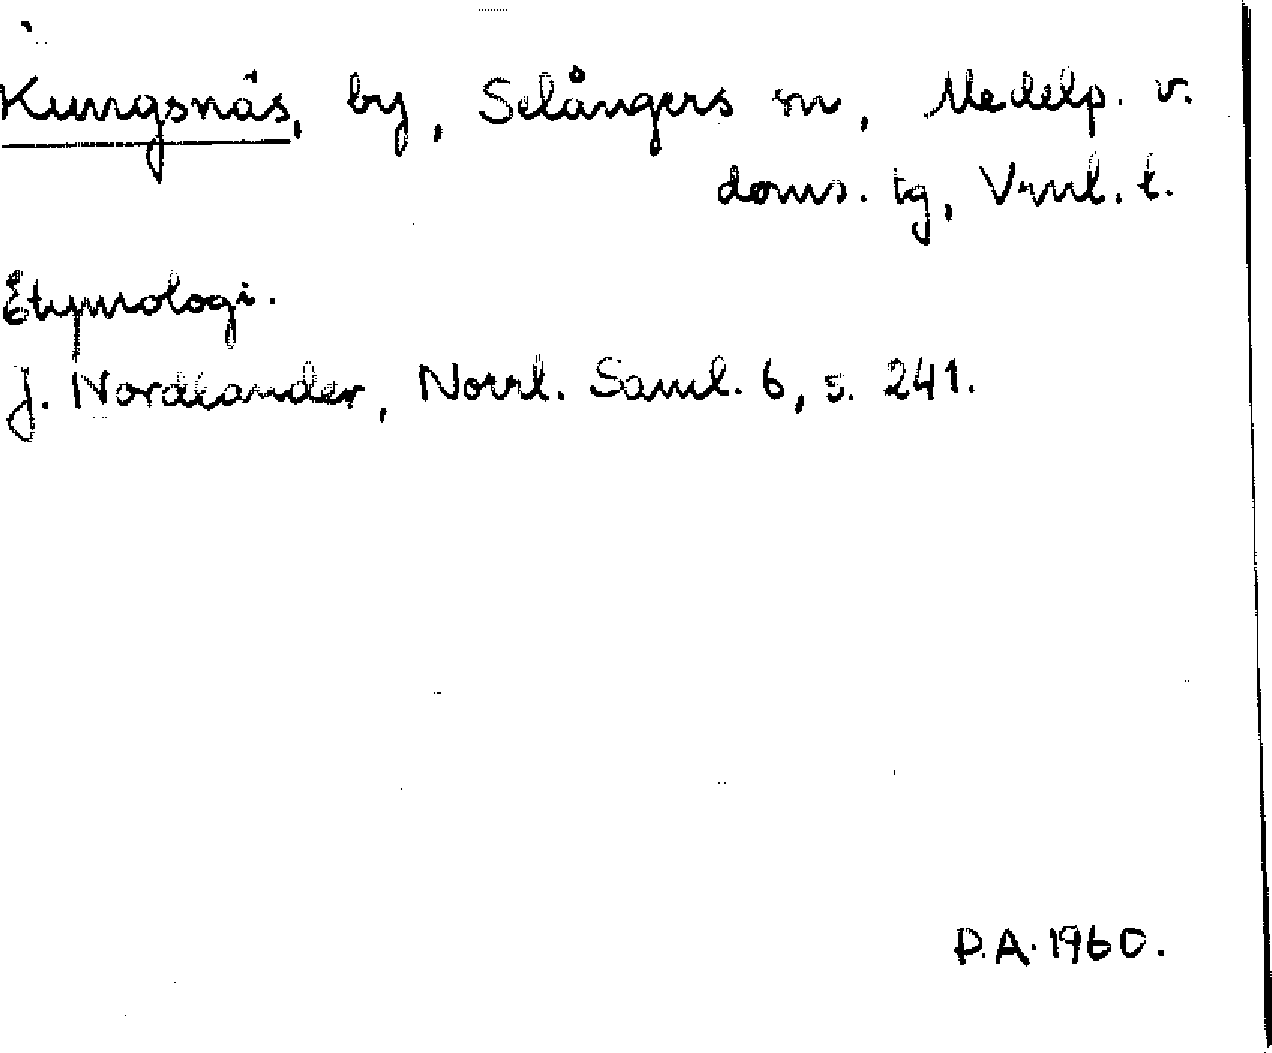 Kungsnäs, by, Selångers sn, Medelp. v.
doms. tg, Vrnl. l.
Etymologi.
J. Nordlander, Norrl. Saml. 6, s. 241.
P.A. 1960.